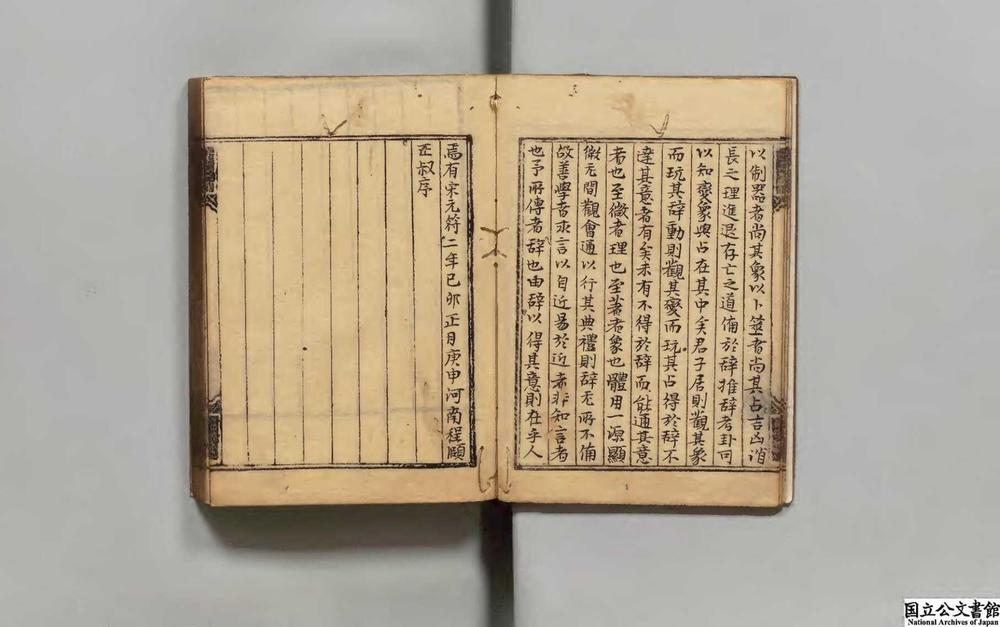 以制器者尚其象以卜筮者尚其占吉凶消
長之理進退存亡之道備於辞推辞考卦可
以知變象與占在其中矣君子居則觀其象
而玩其辞動則觀其變而玩其占得於辞不
達其意者有矣未有不得於辞而能通其意
者也至微者理也至著者象也體用一源顯
微无間觀會通以行其典禮則辞无所不備
故善學者求言必自近易於近者非知言者
也予所傳者辞也由辞以得其意則在乎人
焉有宋元符二年己卯正月庚申河南程頤
正叔序
国立公文書館
National Archives of Japan